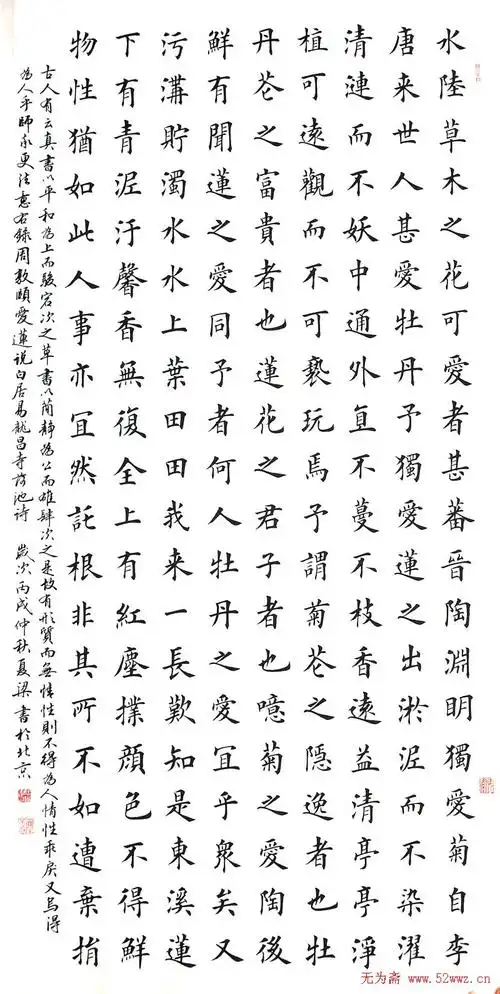 水陸草木之花可愛者甚蕃晉陶淵明獨愛菊自李
唐来世人甚愛牡丹予獨愛蓮之出淤泥而不染濯
清漣而不妖中通外直不蔓不枝香遠益清亭亭淨
植可遠觀而不可褻玩焉予謂菊花之隱逸者也牡
丹花之富貴者也蓮花之君子者也噫菊之愛陶後
鮮有聞蓮之愛同予者何人牡丹之愛宜乎衆矣又
污溝貯濁水水上葉田田我来一長歎知是東溪蓮
下有青泥汙馨香無復全上有紅塵撲顔色不得鮮
物性猶如此人事亦宜然託根非其所不如遭棄捐
古人有云真書以平和為上而駿宕次之草書以簡靜為上而雄肆次之是故有形質而無情性則不得為人情性乖戾又烏得
為人乎師承更注意右錄周敦頤愛蓮説白居易龍昌寺荷池詩 歲次丙戌仲秋夏梁書於北京
无为斋 www.52wwz.cn